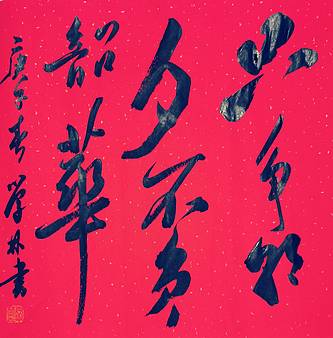 只争朝
夕不负
韶華
庚子春学林書